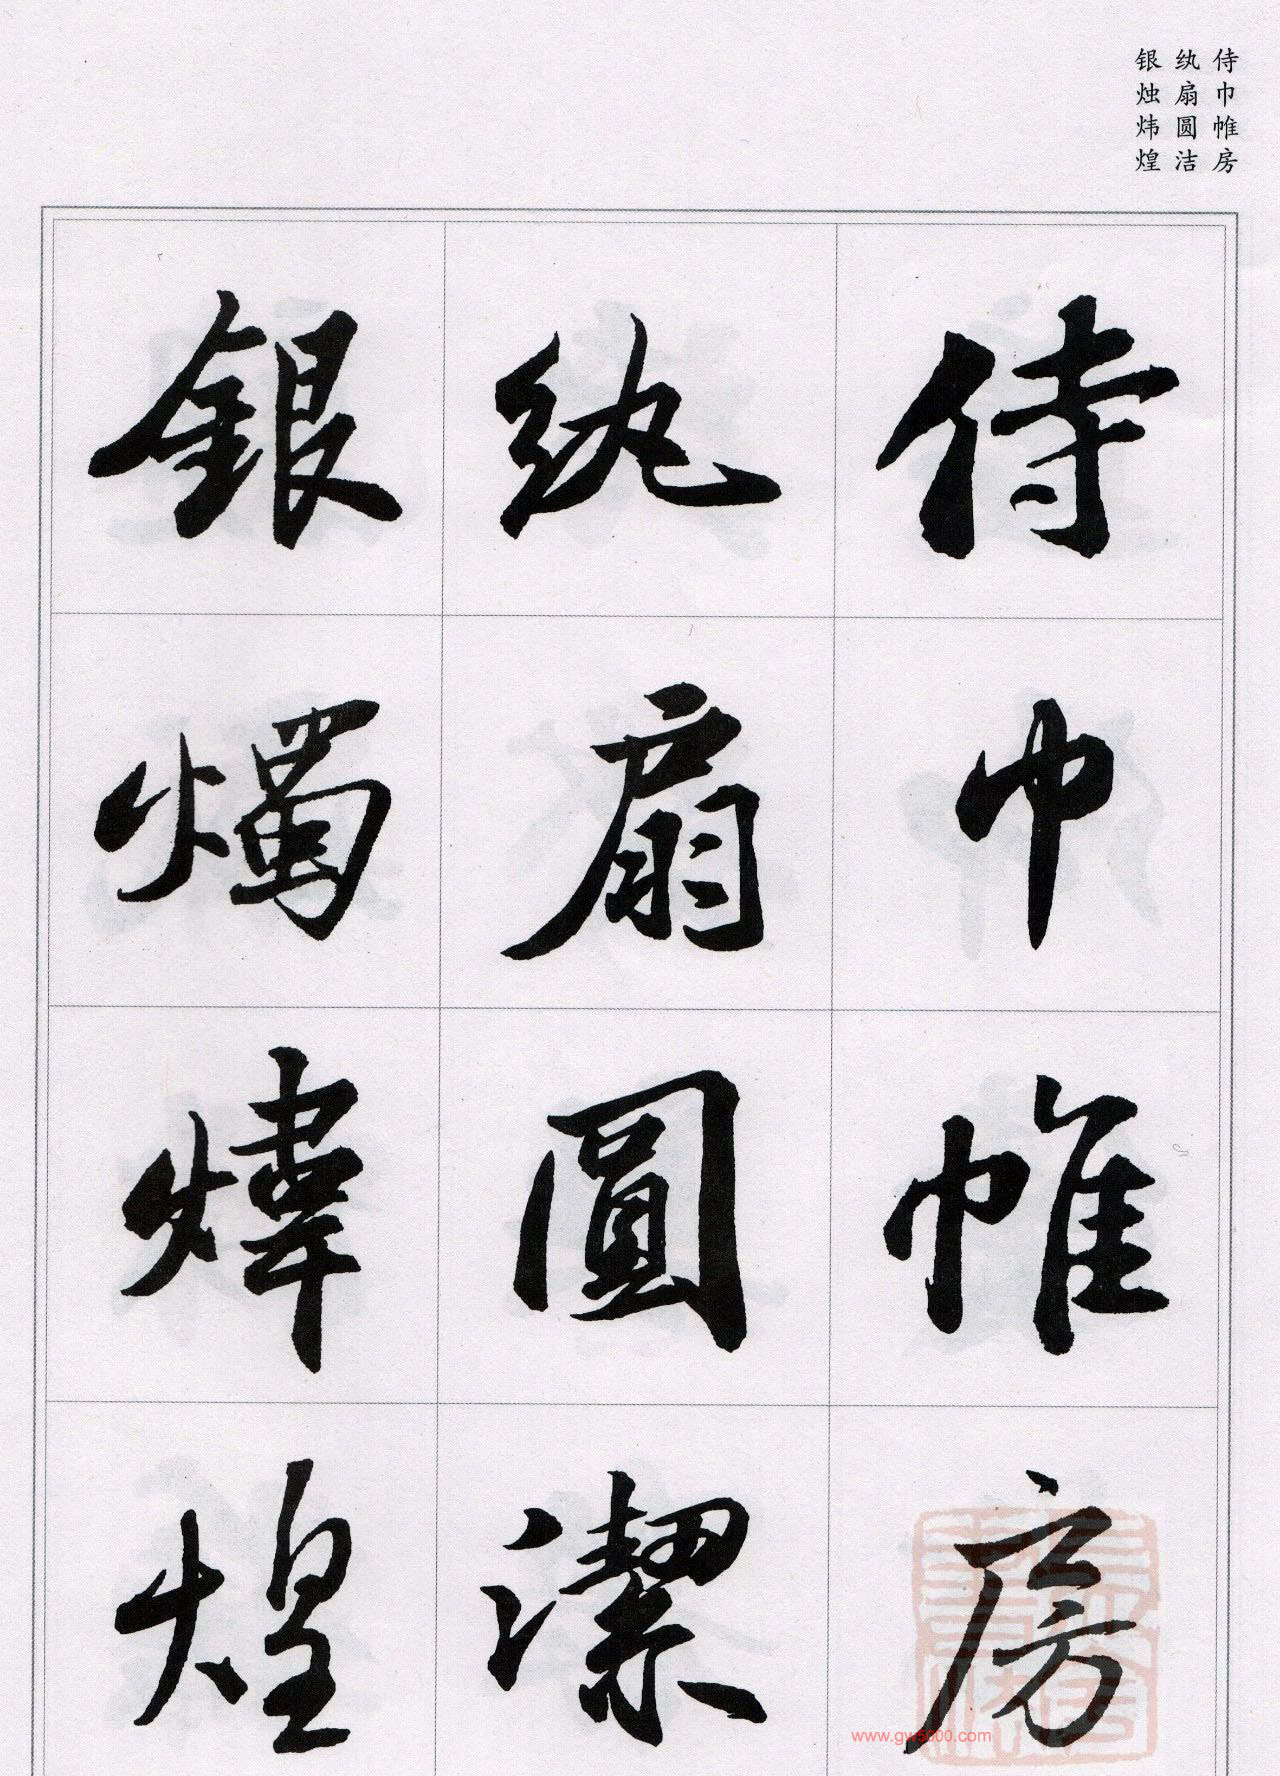 侍巾帷房
纨扇圆洁
银烛炜煌
侍巾帷房
紈扇圓潔
銀燭煒煌
www.gw5000.com